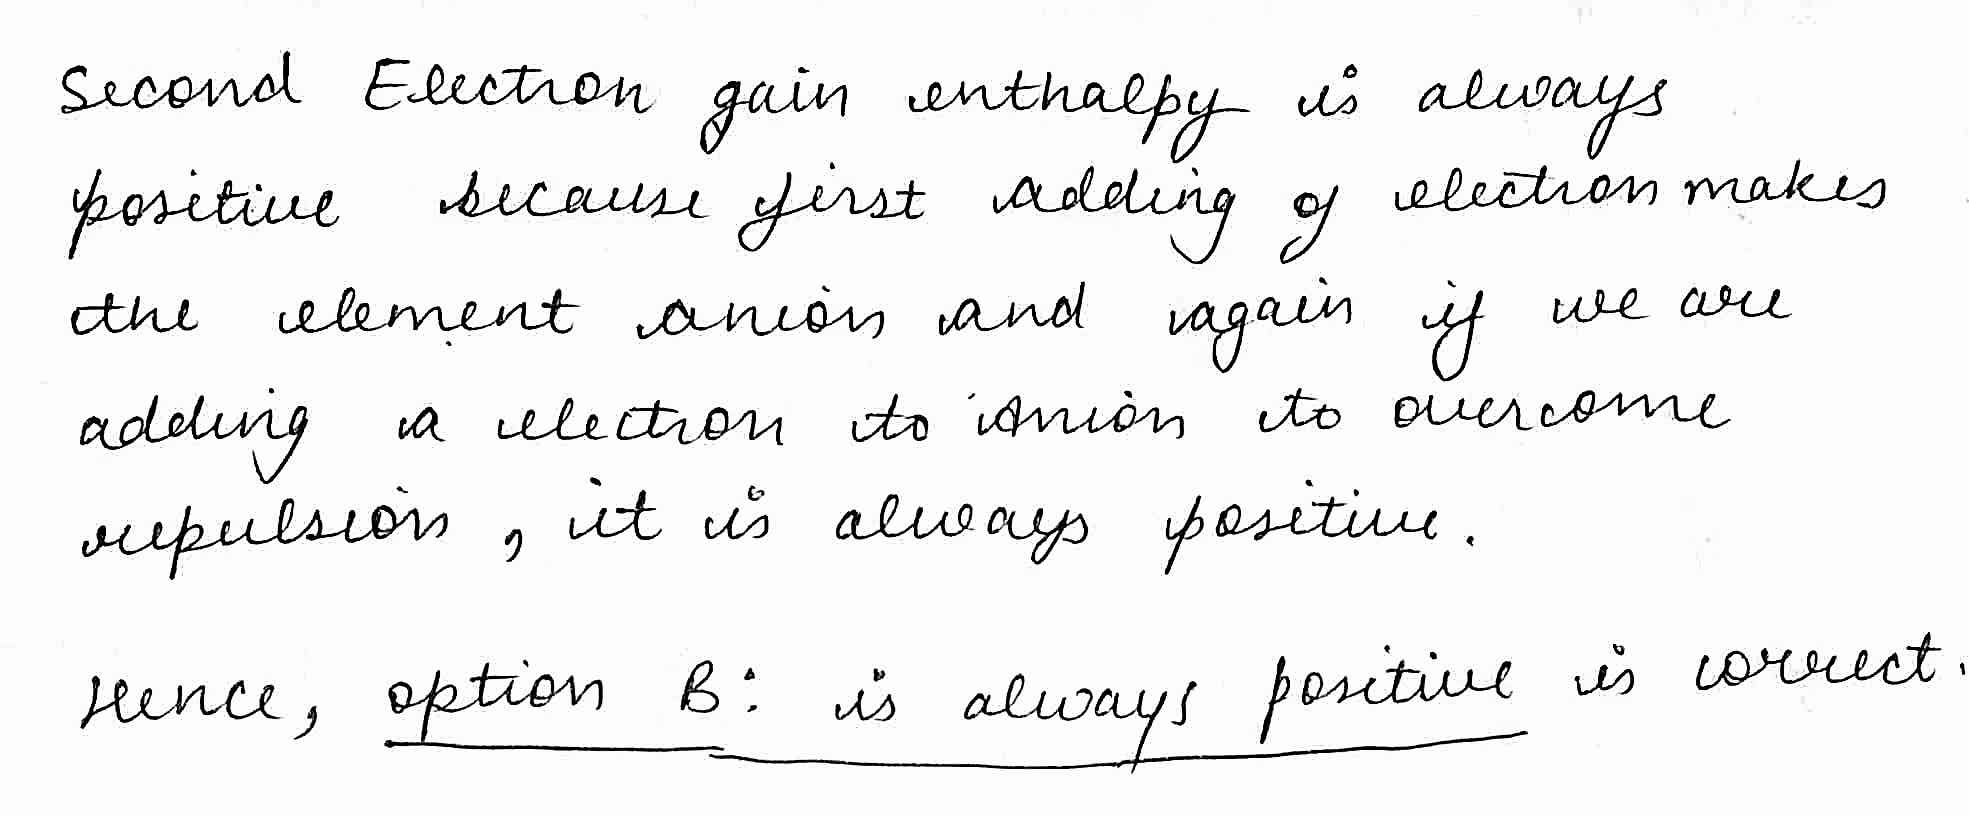 Second Electron gain enthalpy is always
positive because first adding of electron makes
the element anion and again if we are
adding a electron to anion to overcome
repulsion, it is always positive.
Hence, option B: is always positive is correct.